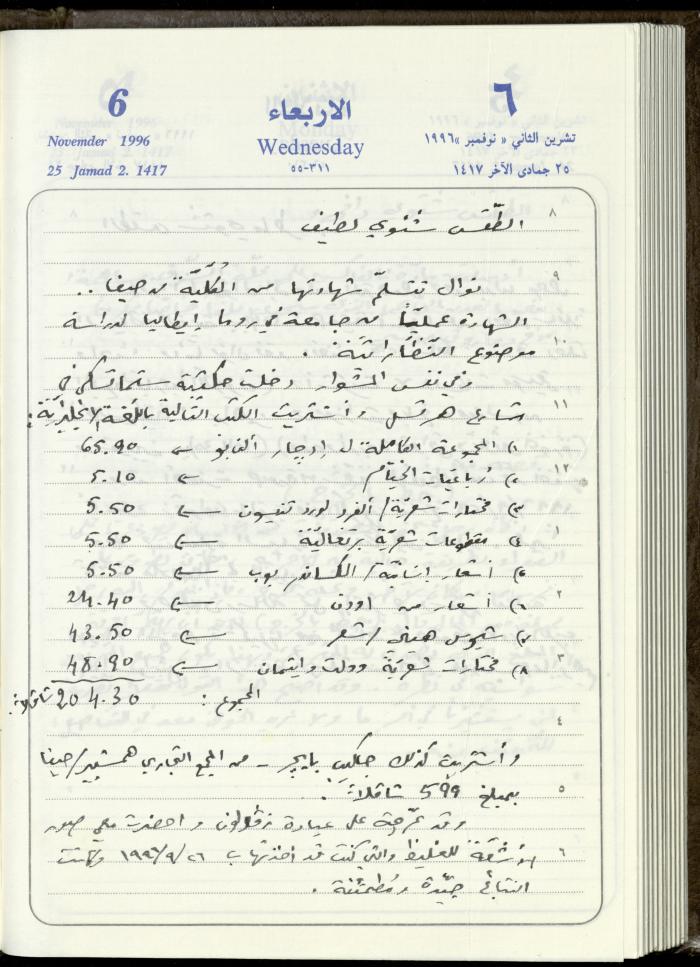 6
Novemder 1996
25 Jamad 2. 1417
الاربعاء
Wednesday
٣١١-٥٥
٦
تشرين الثاني « نوفمبر »١٩٩٦
٢٥ جمادى الآخر ١٤١٧
٨ الطّقس شتوي لطيف
٩ نوال تتسلّم شهادتها من الكُليّة في حيفا ..
الشهادة عمليًّا من جامعة في روما إيطاليا لدراسة
١٠ موضوع
وفي نفس المشوار دخلت مكتبة ستماتسكي في
١١ شارع هرتسل وأشتريت الكتب التّالية باللّغة الإنجليزيّة:
١) المجموعة الكاملة ل إدجار ألن بو 65.90
١٢ ٢) رُباعيات الخيّام 5.10
٣) مختارات شعريّة/ ألفرد لورد تنيسون 5.50
١ ٤) مقطوعات شعريّة برتغاليّة 5.50
٥) أشعار / الكساندر بوب 5.50
٢ ٦) أشعار من اودن 24.40
٧) شيموس هيني/شعر 43.50
٣ ٨) مختارات شعريّة وولت وايتمان 48.90
المجموع : 204.30
٤
وأشتريت كذلك من المجمع التجاري حيفا
٥ بمبلغ 599 شاقلاً.
وقد عرّجت على عيادة زڤولون واحضرت معي صور
٦ الأشعّة والتي كنت قد اخذتها ب ١٩٩٦/٩/٢٦ وكانت
النتائج جيّدة ومُطمئنة .